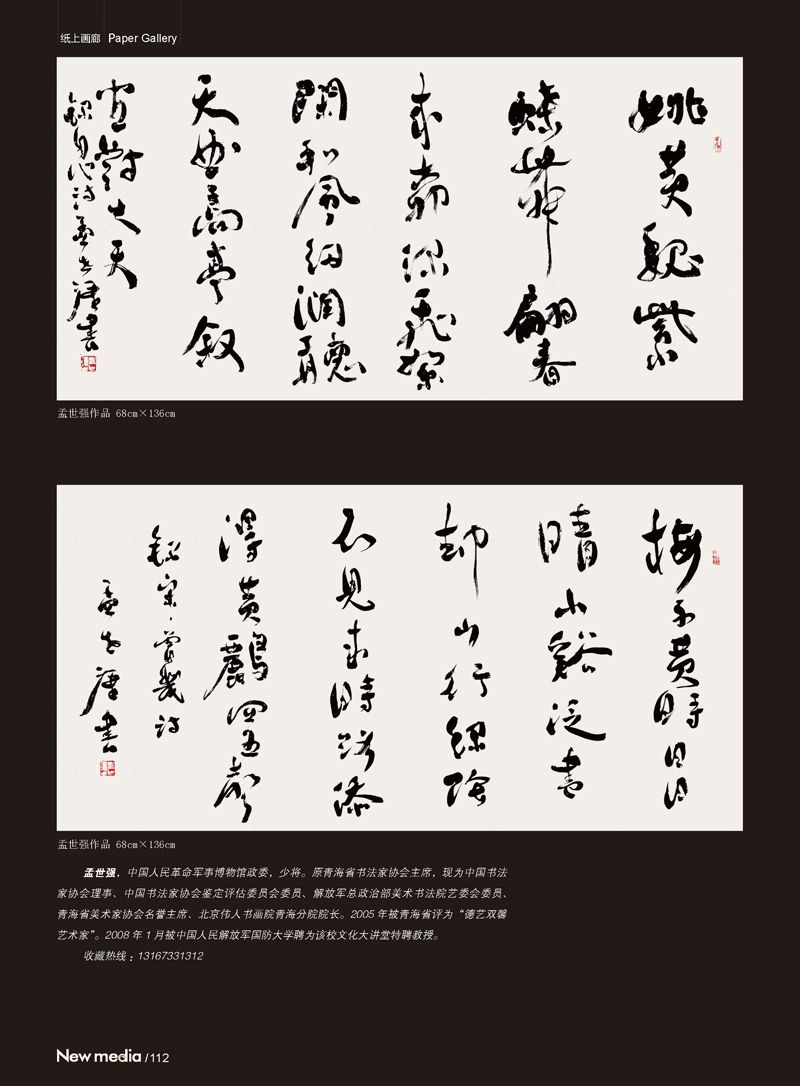 纸上画廊 Paper Gallery
姚黄魏紫
蝶舞翩春
和風細潤聽
天
詩孟世强書
孟世强作品 68cm×136cm
梅子黄時日日
晴小谿泛盡
却山行緑陰
不見來時路添
得黄鸝四五聲
録宋曾幾詩
孟世强書
孟世强作品 68cm×136cm
孟世强，中国人民革命军事博物馆政委，少将。原青海省书法家协会主席，现为中国书法
家协会理事、中国书法家协会鉴定评估委员会委员、解放军总政治部美术书法院艺委会委员、
青海省美术家协会名誉主席、北京伟人书画院青海分院院长。2005 年被青海省评为“德艺双馨
艺术家”。2008 年 1 月被中国人民解放军国防大学聘为该校文化大讲堂特聘教授。
收藏热线：13167331312
New media / 112